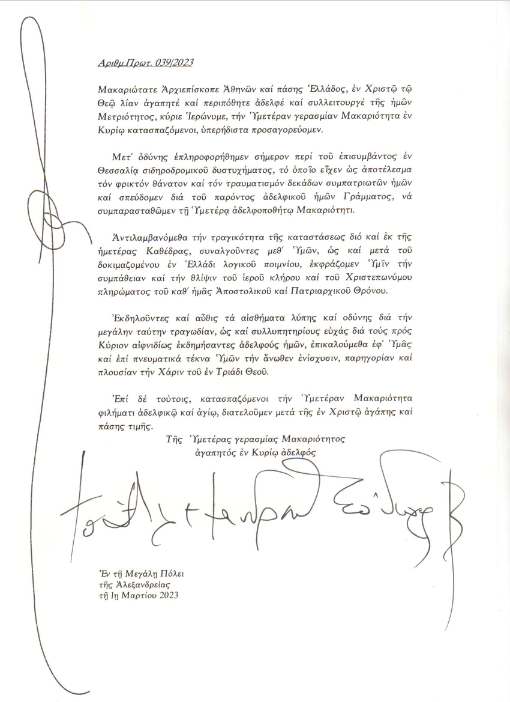 Ἀριθμ.Πρωτ. 039/2023
Μακαριότατε Ἀρχιεπίσκοπε Ἀθηνῶν καί πάσης Ἑλλάδος, ἐν Χριστῷ τῷ
Θεῷ λίαν ἀγαπητέ καί περιπόθητε ἀδελφέ καί συλλειτουργέ τῆς ἡμῶν
Μετριότητος, κύριε Ἱερώνυμε, τήν Ὑμετέραν γερασμίαν Μακαριότητα ἐν
Κυρίῳ κατασπαζόμενοι, ὑπερήδιστα προσαγορεύομεν.
Μετ' ὀδύνης ἐπληροφορήθημεν σήμερον περί τοῦ ἐπισυμβάντος ἐν
Θεσσαλίᾳ σιδηροδρομικοῦ δυστυχήματος, τό ὁποῖο εἶχεν ὡς ἀποτέλεσμα
τόν φρικτόν θάνατον καί τόν τραυματισμόν δεκάδων συμπατριωτῶν ἡμῶν
καί σπεύδομεν διά τοῦ παρόντος ἀδελφικοῦ ἡμῶν Γράμματος, νά
συμπαρασταθῶμεν τῇ Ὑμετέρᾳ ἀδελφοποθήτῳ Μακαριότητι.
Ἀντιλαμβανόμεθα τήν τραγικότητα τῆς καταστάσεως διό καί ἐκ τῆς
ἡμετέρας Καθέδρας, συναλγοῦντες μεθ' Ὑμῶν, ὡς καί μετά τοῦ
δοκιμαζομένου ἐν Ἑλλάδι λογικοῦ ποιμνίου, ἐκφράζομεν Ὑμῖν τήν
συμπάθειαν καί τήν θλίψιν τοῦ ἱεροῦ κλήρου καί τοῦ Χριστεπωνύμου
πληρώματος τοῦ καθ' ἡμᾶς Ἀποστολικοῦ καί Πατριαρχικοῦ Θρόνου.
Ἐκδηλοῦντες καί αὖθις τά αἰσθήματα λύπης καί ὀδύνης διά τήν
μεγάλην ταύτην τραγωδίαν, ὡς καί συλλυπητηρίους εὐχάς διά τούς πρός
Κύριον αἰφνιδίως ἐκδημήσαντες ἀδελφούς ἡμῶν, ἐπικαλούμεθα ἐφ' Ὑμᾶς
καί ἐπί πνευματικά τέκνα Ὑμῶν τήν ἄνωθεν ἐνίσχυσιν, παρηγορίαν καί
πλουσίαν τήν Χάριν τοῦ ἐν Τριάδι Θεοῦ.
Ἐπί δέ τούτοις, κατασπαζόμενοι τήν Ὑμετέραν Μακαριότητα
φιλήματι ἀδελφικῷ καί ἁγίῳ, διατελοῦμεν μετά τῆς ἐν Χριστῷ ἀγάπης καί
πάσης τιμῆς.
Τῆς Ὑμετέρας γερασμίας Μακαριότητος
ἀγαπητός ἐν Κυρίῳ ἀδελφός
Ἐν τῇ Μεγάλῃ Πόλει
τῆς Ἀλεξανδρείας
τῇ 1ῃ Μαρτίου 2023